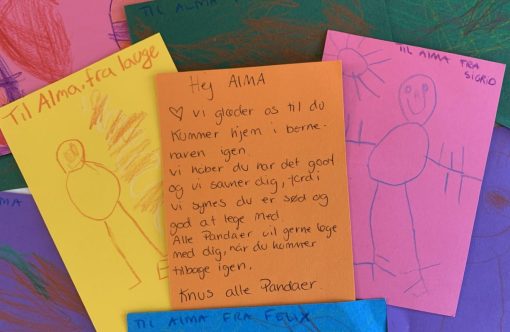 TIL ALMA
Til Alma, fra Lauge
TIL ALMA FRA
SIGRID
Hey ALMA
♡ Vi glæder os til du
kommer hjem i børne-
haven igen.
Vi håber du har det godt
og vi savner dig, fordi
vi synes du er sød og
god at lege med.
Alle Pandaer vil gerne lege
med dig, når du kommer
tilbage igen.
Knus alle Pandaer
TIL ALMA FRA FELIX